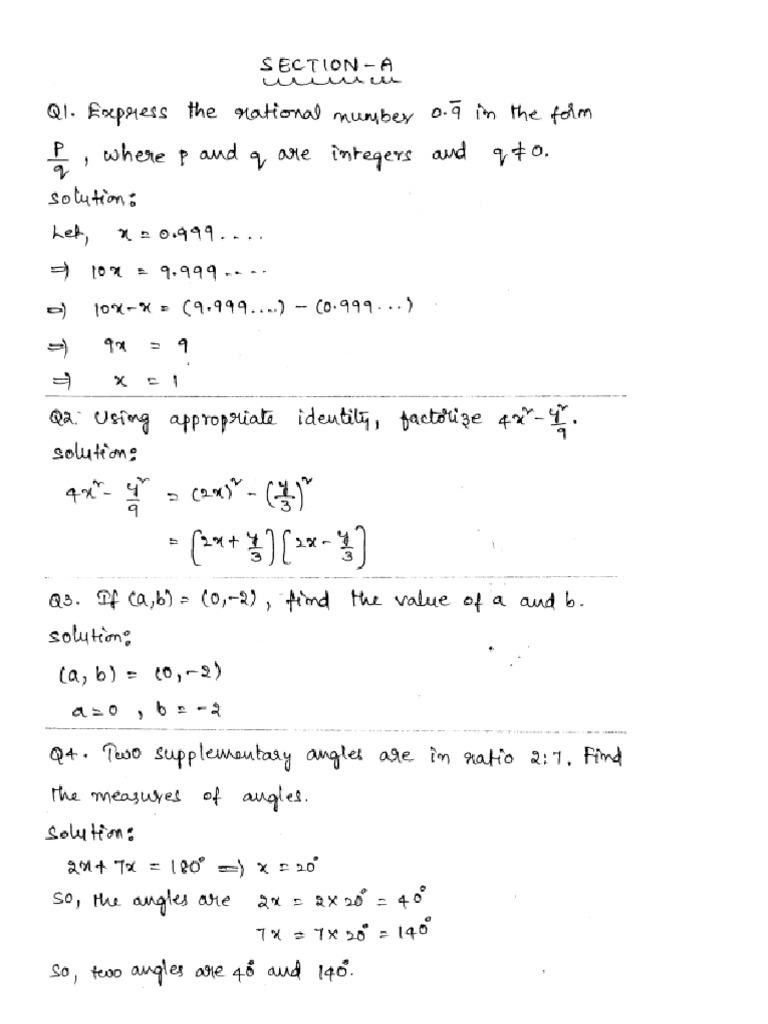 SECTION-A
Q1. Express the rational number 0.9̅ in the form
p/q, where p and q are integers and q≠0.
Solution:
Let, x = 0.999....
⇒ 10x = 9.999....
⇒ 10x-x = (9.999....) - (0.999...)
⇒ 9x = 9
⇒ x = 1
Q2. Using appropriate identity, factorize 4x² - y²/9.
Solution:
4x² - y²/9 = (2x)² - (y/3)²
= [2x + y/3][2x - y/3]
Q3. If (a,b) = (0,-2), find the value of a and b.
Solution:
(a, b) = (0, -2)
a=0, b = -2
Q4. Two supplementary angles are in ratio 2:7. Find
the measures of angles.
Solution:
2x + 7x = 180° ⇒ x = 20°
So, the angles are 2x = 2×20° = 40°
7x = 7×20° = 140°
So, two angles are 40° and 140°.